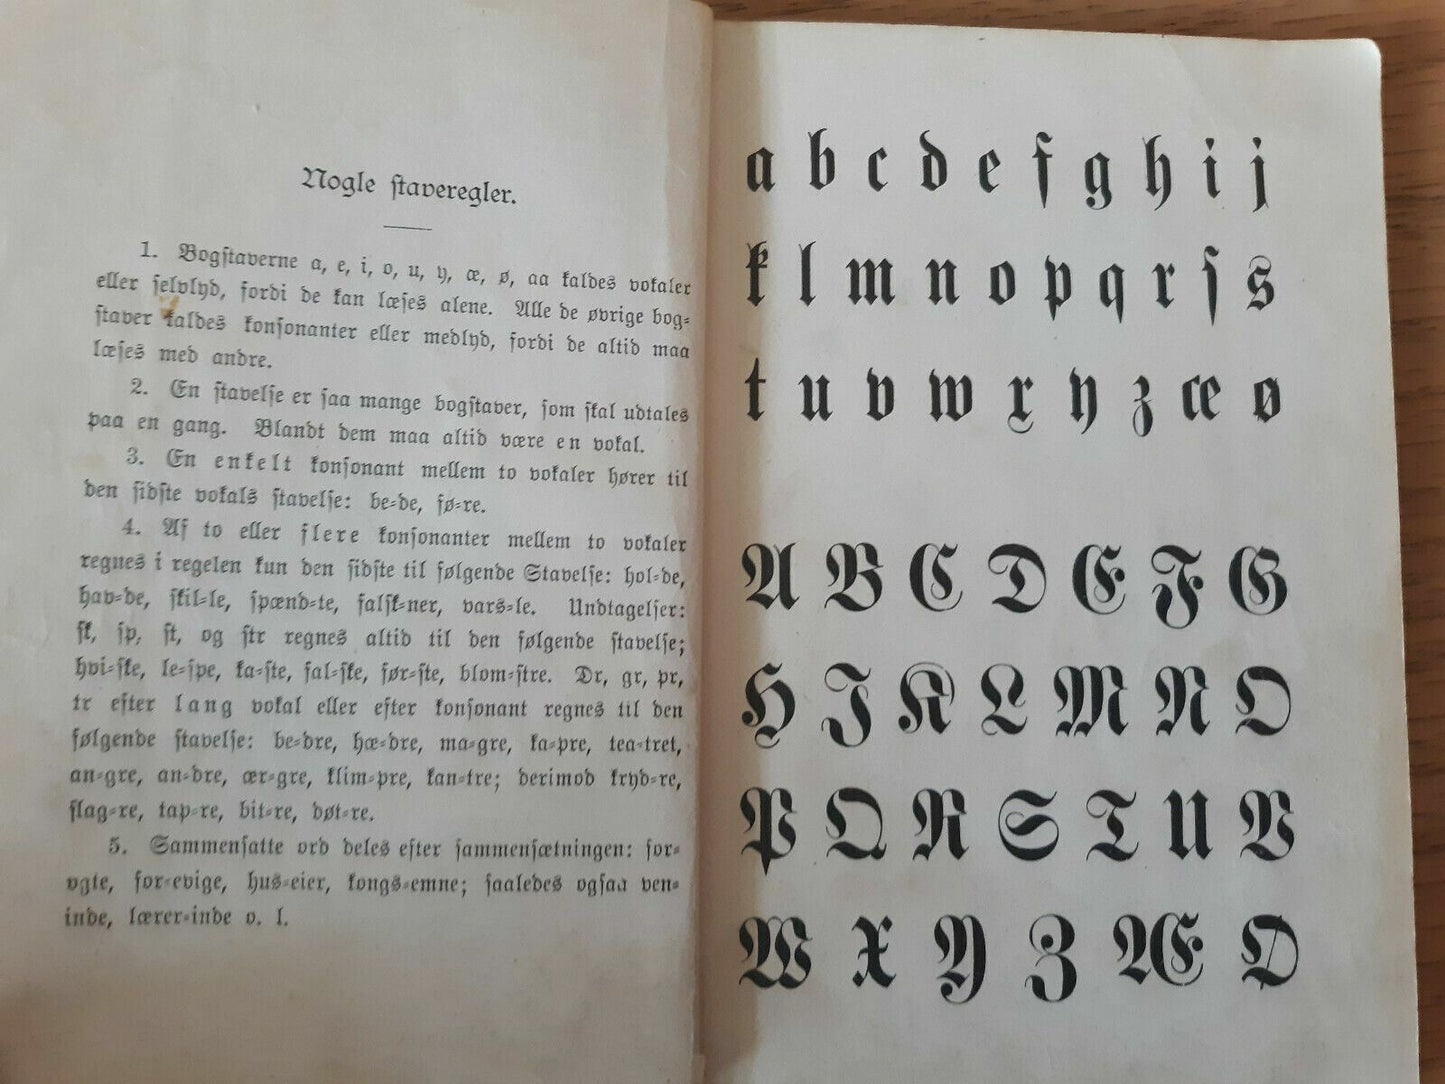 Nogle ſtaveregler.
1. Bogſtaverne a, e, i, o, u, y, æ, ø, aa kaldes vokaler
eller ſelvlyd, fordi de kan læſes alene. Alle de øvrige bog-
ſtaver kaldes konſonanter eller medlyd, fordi de altid maa
læſes med andre.
2. En ſtavelſe er ſaa mange bogſtaver, ſom ſkal udtales
paa en gang. Blandt dem maa altid være en vokal.
3. En enkelt konſonant mellem to vokaler hører til
den ſidſte vokals ſtavelſe: be-de, fø-re.
4. Af to eller flere konſonanter mellem to vokaler
regnes i regelen kun den ſidſte til følgende Stavelſe: hol-de,
hav-de, ſkil-le, ſpænd-te, falſk-ner, vars-le. Undtagelſer:
ſk, ſp, ſt, og ſtr regnes altid til den følgende ſtavelſe;
hvi-ſke, le-ſpe, ka-ſte, fal-ſke, før-ſte, blom-ſtre. Dr, gr, pr,
tr efter lang vokal eller efter konſonant regnes til den
følgende ſtavelſe: be-dre, hæ-dre, ma-gre, ka-pre, tea-tret,
an-gre, an-dre, ær-gre, klim-pre, kan-tre; derimod kryd-re,
flag-re, tap-re, bit-re, døt-re.
5. Sammenſatte ord deles efter ſammenſætningen: for-
ogte, for-evige, hus-eier, kongs-emne; ſaaledes ogſaa ven-
inde, lærer-inde o. l.
a b c d e f g h i j
k l m n o p q r ſ s
t u v w x y z æ ø
A B C D E F G
H J K L M N O
P Q R S T U V
W X Y Z Æ Ø